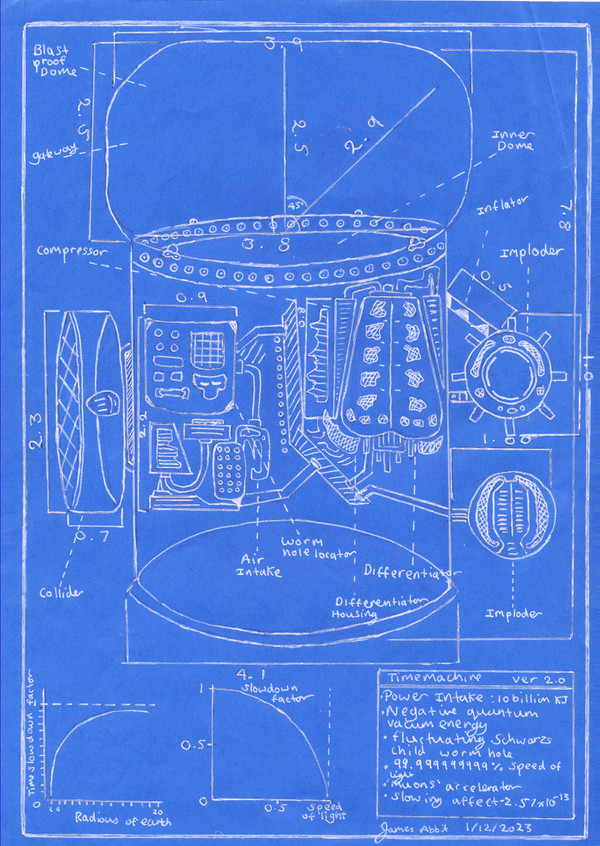 3.9
Blast
proof
Dome
2.5
2.5
2.9
gateway
45°
Inner
Dome
7.8
Inflator
3.8
Compressor
Imploder
0.5
0.9
0.8
2.3
2.2
1.0
1.8
0.7
Worm
hole locator
Air
Intake
Differentiator
Collider
Differentiator
Housing
Imploder
4.1
Time slowdown factor
0
20
Radious of earth
slowdown
factor
1
0.5
0
0.5
speed
of light
Timemachine ver 2.0
• Power Intake : 10 billion KJ
• Negative quantum
vacum energy
• fluctuating Schwarzs
child worm hole
• 99.999999999% speed of
light
• muons' arcelerator
• slowing affect-2.51x10⁻¹³
James Abbit 1/12/2023